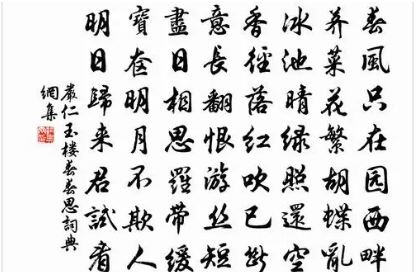 春風只在园西畔
荠菜花繁胡蝶亂
冰池晴绿照還空
香徑落红吹已断
意長翻恨游丝短
盡日相思羅带緩
寶奁明月不欺人
明日歸来君試看
嚴仁玉楼春春思詞典
網集